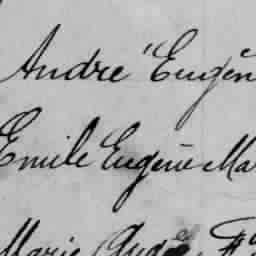 Andre Eugèn
Emile Eugène Ma
Marie André